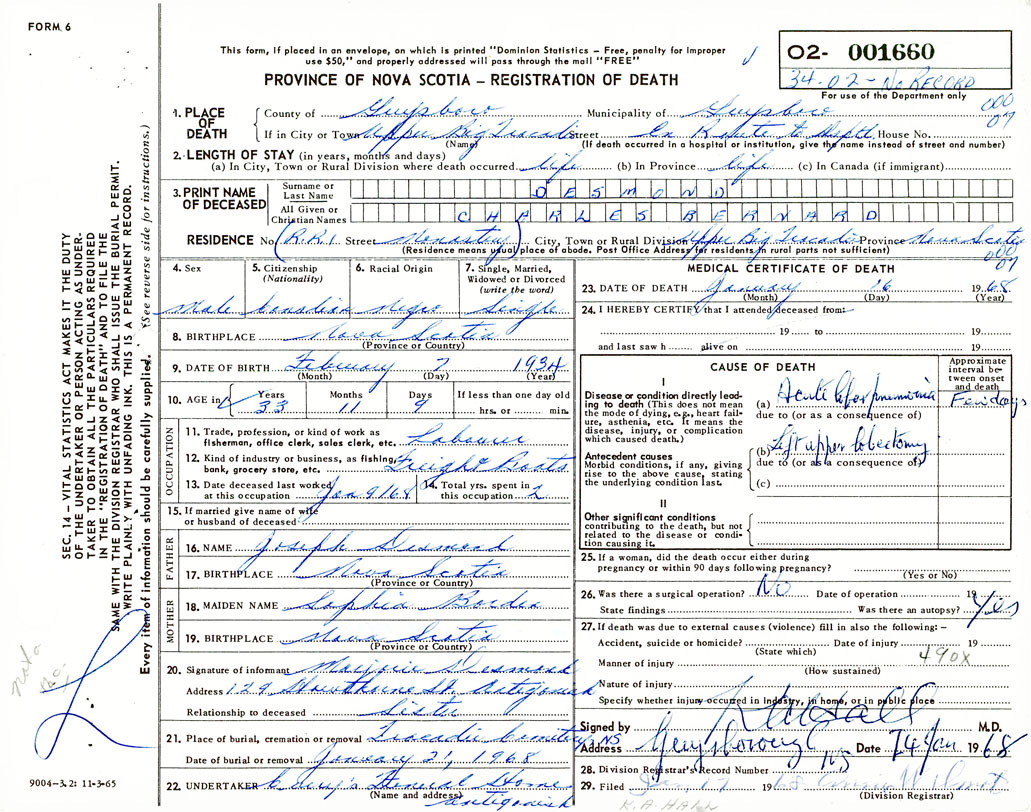 FORM 6
This form, if placed in an envelope, on which is printed "Dominion Statistics – Free, penalty for improper
use $50," and properly addressed will pass through the mail "FREE"
PROVINCE OF NOVA SCOTIA – REGISTRATION OF DEATH
O2- 001660
34-02-No RECORD
For use of the Department only
000
07
1. PLACE OF DEATH
County of Guysboro Municipality of Guysboro
If in City or Town Upper Big Tracadie Street En Route to Hspth House No.
(Name) (If death occurred in a hospital or institution, give the name instead of street and number)
2. LENGTH OF STAY (in years, months and days)
(a) In City, Town or Rural Division where death occurred life (b) In Province life (c) In Canada (if immigrant)
3. PRINT NAME OF DECEASED
Surname or Last Name DESMOND
All Given or Christian Names CHARLES BERNARD
RESIDENCE No. (R.R.1 Street Monastery) City, Town or Rural Division Upper Big Tracadie Province Nova Scotia
(Residence means usual place of abode. Post Office Address for residents in rural parts not sufficient)
000
07
4. Sex Male
5. Citizenship (Nationality) Canadian
6. Racial Origin Negro
7. Single, Married, Widowed or Divorced (write the word) Single
8. BIRTHPLACE Nova Scotia
(Province or Country)
9. DATE OF BIRTH February 7 1934
(Month) (Day) (Year)
10. AGE in Years 33 Months 11 Days 9 If less than one day old hrs. or min.
OCCUPATION
11. Trade, profession or kind of work as
fisherman, office clerk, sales clerk, etc. Labourer
12. Kind of industry or business, as fishing,
bank, grocery store, etc. Freight Boats
13. Date deceased last worked
at this occupation Jan 9/68
14. Total yrs. spent in
this occupation 2
15. If married give name of wife
or husband of deceased
FATHER
16. NAME Joseph Desmond
17. BIRTHPLACE Nova Scotia
(Province or Country)
MOTHER
18. MAIDEN NAME Sophia Borden
19. BIRTHPLACE Nova Scotia
(Province or Country)
20. Signature of informant Marjorie Desmond
Address 129 Hawthorne St. Antigonish
Relationship to deceased Sister
21. Place of burial, cremation or removal Tracadie Cemetery, NS
Date of burial or removal January 21, 1968
22. UNDERTAKER Funeral Home
(Name and address) Antigonish
MEDICAL CERTIFICATE OF DEATH
23. DATE OF DEATH January 16 1968
(Month) (Day) (Year)
24. I HEREBY CERTIFY that I attended deceased from:
19 to
19
and last saw h alive on 19
CAUSE OF DEATH
Approximate interval between onset and death
I
Disease or condition directly leading
to death (This does not mean
the mode of dying, e.g., heart failure,
asthenia, etc. It means the
disease, injury, or complication
which caused death.)
(a) Acute lobar pneumonia Few days
due to (or as a consequence of)
Antecedent causes
Morbid conditions, if any, giving
rise to the above cause, stating
the underlying condition last.
(b) Lft upper lobectomy
due to (or as a consequence of)
(c)
II
Other significant conditions
contributing to the death, but not
related to the disease or condition
causing it.
25. If a woman, did the death occur either during
pregnancy or within 90 days following pregnancy?
(Yes or No)
26. Was there a surgical operation? No Date of operation 19
State findings Was there an autopsy? Yes
27. If death was due to external causes (violence) fill in also the following: –
Accident, suicide or homicide? Date of injury 19
(State which)
490X
Manner of injury
(How sustained)
Nature of injury
Specify whether injury occurred in industry, in home, or in public place
Signed by M.D.
Address Guysborough NS Date 24 Jan 1968
28. Division Registrar's Record Number
29. Filed Jan 17 1968
(Division Registrar)
SEC. 14 – VITAL STATISTICS ACT MAKES IT THE DUTY
OF THE UNDERTAKER OR PERSON ACTING AS UNDERTAKER
TO OBTAIN ALL THE PARTICULARS REQUIRED
IN THE "REGISTRATION OF DEATH" AND TO FILE THE
SAME WITH THE DIVISION REGISTRAR WHO SHALL ISSUE THE BURIAL PERMIT.
WRITE PLAINLY WITH UNFADING INK. THIS IS A PERMANENT RECORD.
Every item of information should be carefully supplied. (See reverse side for instructions.)
9004–3.2: 11-3-65